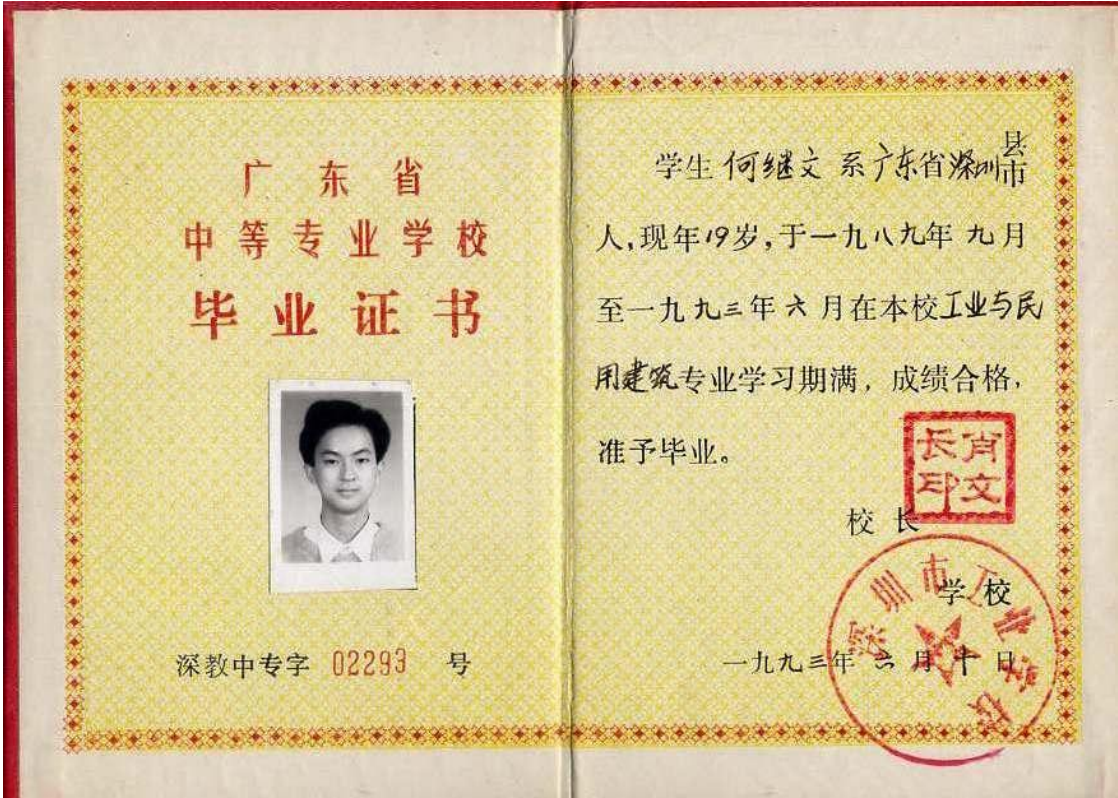 广东省
中等专业学校
毕业证书
深教中专字 02293 号
学生何继文系广东省深圳县市
人,现年19岁,于一九八九年九月
至一九九三年六月在本校工业与民
用建筑专业学习期满,成绩合格,
准予毕业。
校长
肖文长印
学校
深圳市工业学校
一九九三年六月十日